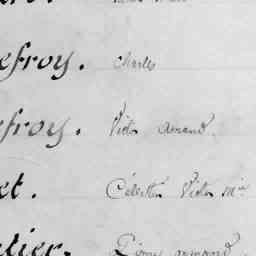 efroy. Charles
efroy. Victor Amand.
et. Célestin Victor Mie
elier. Rémy Armand.